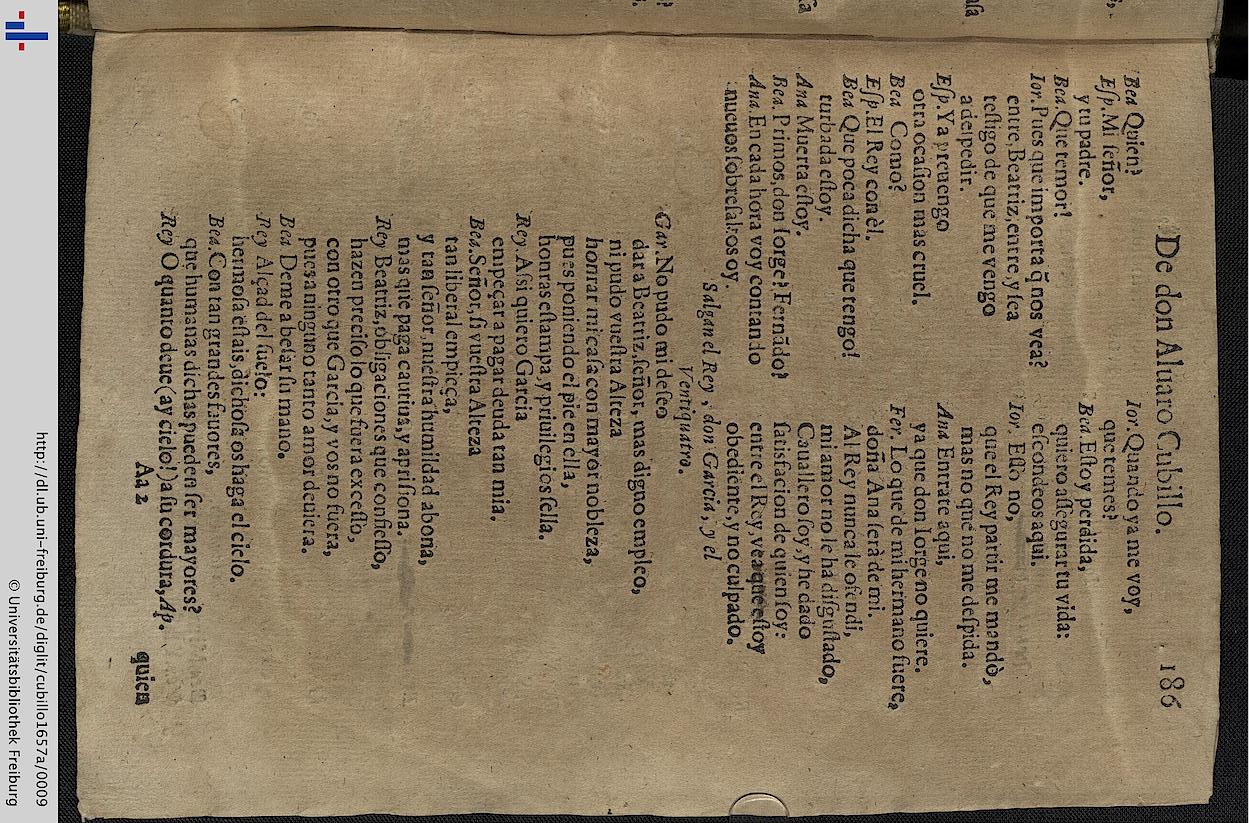 De don Aluaro Cubillo. 186
Bea Quien?
Eſp. Mi ſeñor,
y tu padre.
Bea. Que temor!
Ior. Pues que importa q̃ nos vea?
entre, Beatriz, entre, y ſea
teſtigo de que me vengo
a deſpedir.
Eſp. Ya preuengo
otra ocaſion mas cruel.
Bea Como?
Eſp. El Rey con èl.
Bea Que poca dicha que tengo!
turbada eſtoy.
Ana Muerta eſtoy.
Bea. Primos, don Iorge? Fernãdo?
Ana. En cada hora voy contando
nueuos ſobreſaltos oy.
Ior. Quando ya me voy,
que temes?
Bea Eſtoy perdida,
quiero aſſegurar tu vida:
eſcondeos aqui.
Ior. Eſſo no,
que el Rey partir me mandò,
mas no que no me deſpida.
Ana Entrate aqui,
ya que don Iorge no quiere.
Fer. Lo que de mi hermano fuere,
doña Ana ſerà de mi.
Al Rey nunca le ofendi,
mi amor no le ha diſguſtado,
Cauallero ſoy, y he dado
ſatisfacion de quien ſoy:
entre el Rey, vea que eſtoy
obediẽte, y no culpado.
Salgan el Rey, don Garcia, y el
Ventiquatro.
Gar. No pudo mi deſeo
dar a Beatriz, ſeñor, mas digno empleo,
ni pudo vueſtra Alteza
honrar mi caſa con mayor nobleza,
pues poniendo el pie en ella,
honras eſtampa, y priuilegios ſella.
Rey. Aſsi quiero Garcia
empeçar a pagar deuda tan mia.
Bea. Señor, ſi vueſtra Alteza
tan liberal empieça,
y tan ſeñor, nueſtra humildad abona,
mas que paga cautiua, y apriſiona.
Rey Beatriz, obligaciones que confieſſo,
hazen preciſo lo que fuera exceſſo,
con otro que Garcia, y vos no fuera,
pues a ninguno tanto amor deuiera.
Bea Deme a beſar ſu mano.
Rey Alçad del ſuelo:
hermoſa eſtais, dichoſa os haga el cielo.
Bea. Con tan grandes fauores,
que humanas dichas pueden ſer mayores?
Rey O quanto deue (ay cielo!) a ſu cordura, Ap.
Aa 2 quien
http://dl.ub.uni-freiburg.de/diglit/cubillo1657a/0009
© Universitätsbibliothek Freiburg